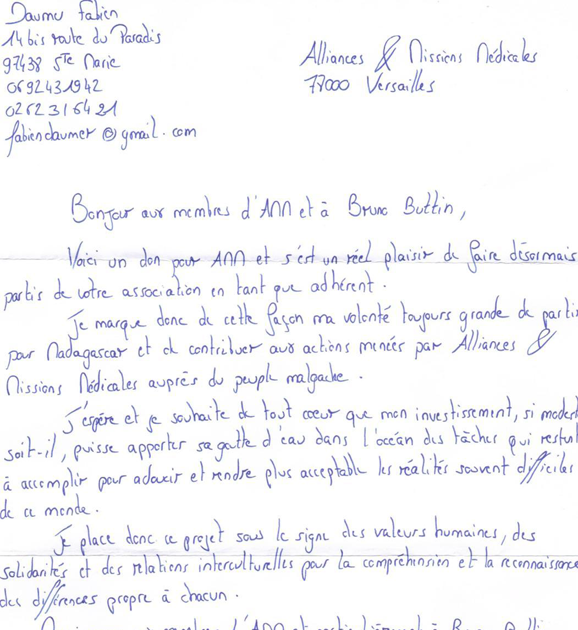 Daumu Fabien
14 bis route du Paradis
97438 Ste Marie
0692431942
0262316421
fabiendaumer@gmail.com
Alliances & Missions Médicales
77000 Versailles
Bonjour aux membres d'AMM et à Bruno Buttin,
Voici un don pour AMM et s'est un réel plaisir de faire désormais
partis de votre association en tant que adhérent.
Je marque donc de cette façon ma volonté toujours grande de partir
pour Madagascar et de contribuer aux actions menées par Alliances &
Missions Médicales auprès du peuple malgache.
J'espère et je souhaite de tout coeur que mon investissement, si modest
soit-il, puisse apporter sa goutte d'eau dans l'océan des tâches qui restent
à accomplir pour adoucir et rendre plus acceptable les réalités souvent difficiles
de ce monde.
Je place donc ce projet sous le signe des valeurs humaines, des
solidarités et des relations interculturelles pour la compréhension et la reconnaissance
des différences propre à chacun.